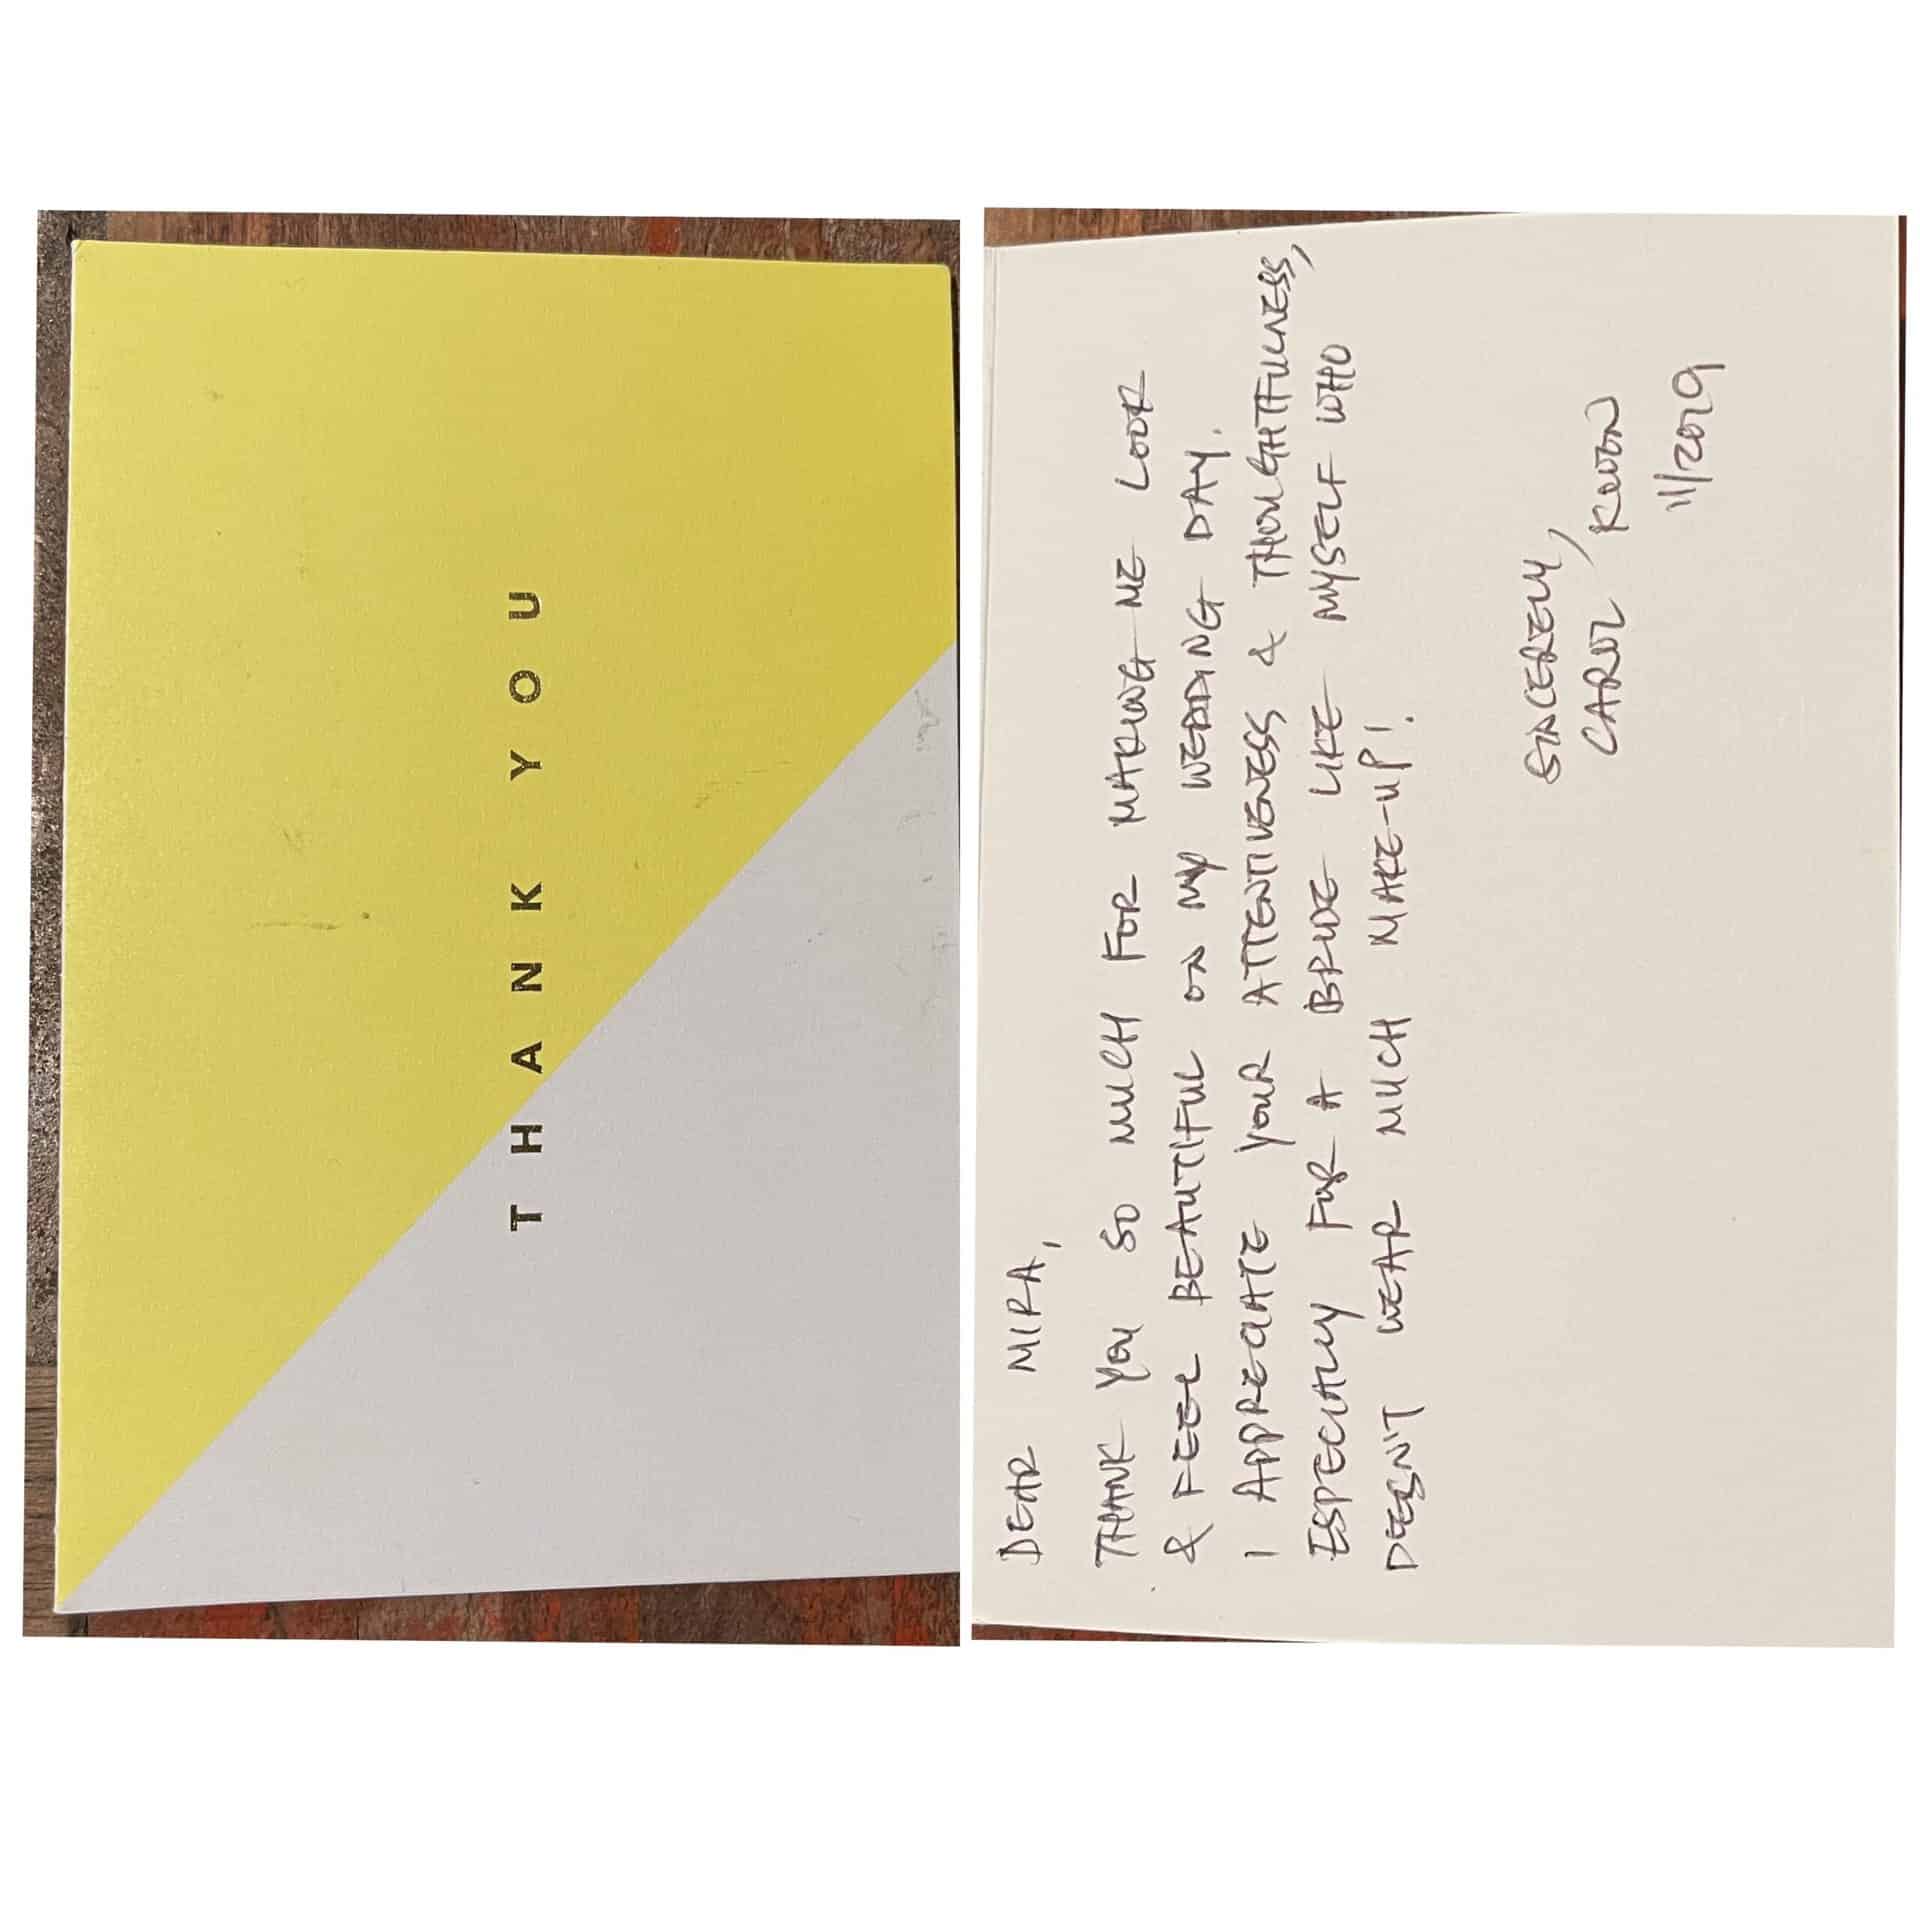 THANK YOU
DEAR MIRA,
THANK YOU SO MUCH FOR MAKING ME LOOK
& FEEL BEAUTIFUL ON MY WEDDING DAY.
I APPRECIATE YOUR ATTENTIVENESS & THOUGHTFULNESS,
ESPECIALLY FOR A BRIDE LIKE MYSELF WHO
DOESN'T WEAR MUCH MAKE-UP!
SINCERELY,
CAROL KWON
11/2019